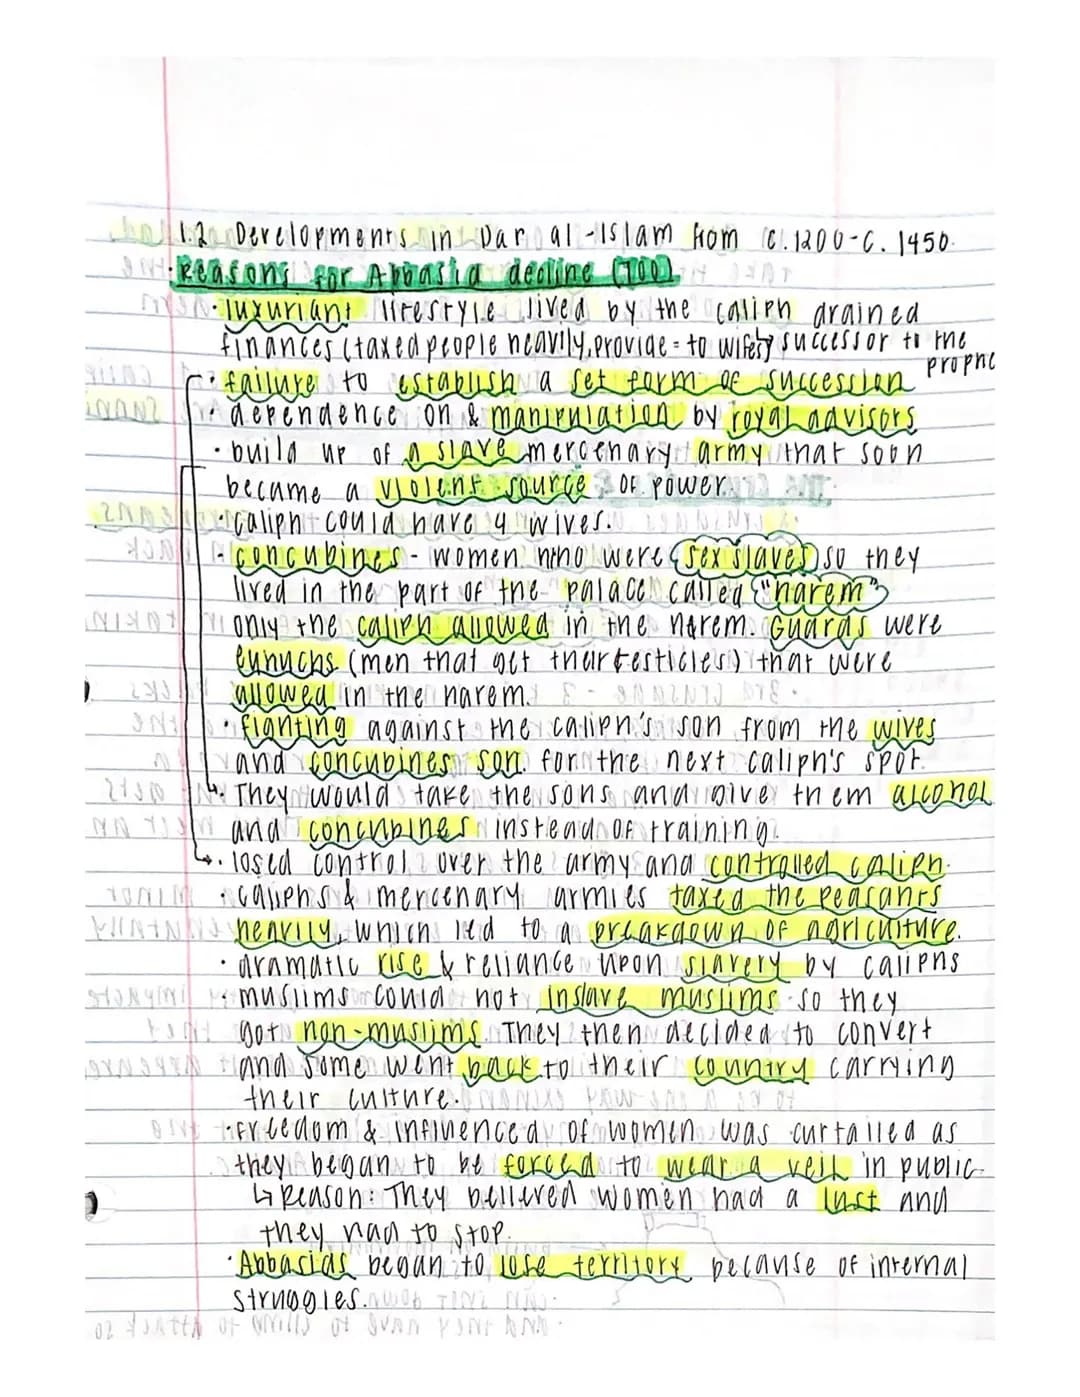 1.2 Developments in Dar al-Islam from c.1200-c. 1450.
· Reasons for Abbasid decline (700)
· luxuriant lifestyle lived by the caliph drained
finances (taxed people heavily, provide = to wifes) successor to the
prophe
· failure to establish a set form of succession
· dependence on & manipulation by royal advisors
· build up of a slave mercenary army that soon
became a violent source of power.
· caliph could have 4 wives.
· concubines - women who were sex slaves so they
lived in the part of the palace called "harem"
only the caliph allowed in the harem. Guards were
eunuchs (men that get their testicles) that were
allowed in the harem.
· fighting against the caliph's son from the wives
and concubines son for the next caliph's spot.
↳· They would take the sons and give them alcohol
and concubines instead of training.
↳· losed control over the army and controlled caliph.
· caliphs & mercenary armies taxed the peasants
heavily, which led to a breakdown of agriculture.
· dramatic rise & reliance upon slavery by caliphs
· muslims could not inslave muslims so they
got non-muslims. They then decided to convert
and some went back to their country carrying
their culture.
· freedom & influenced of women was curtailed as
they began to be forced to wear a veil in public
↳ Reason: They believed women had a lust and
they had to stop.
· Abbasids began to lose territory because of internal
struggles.